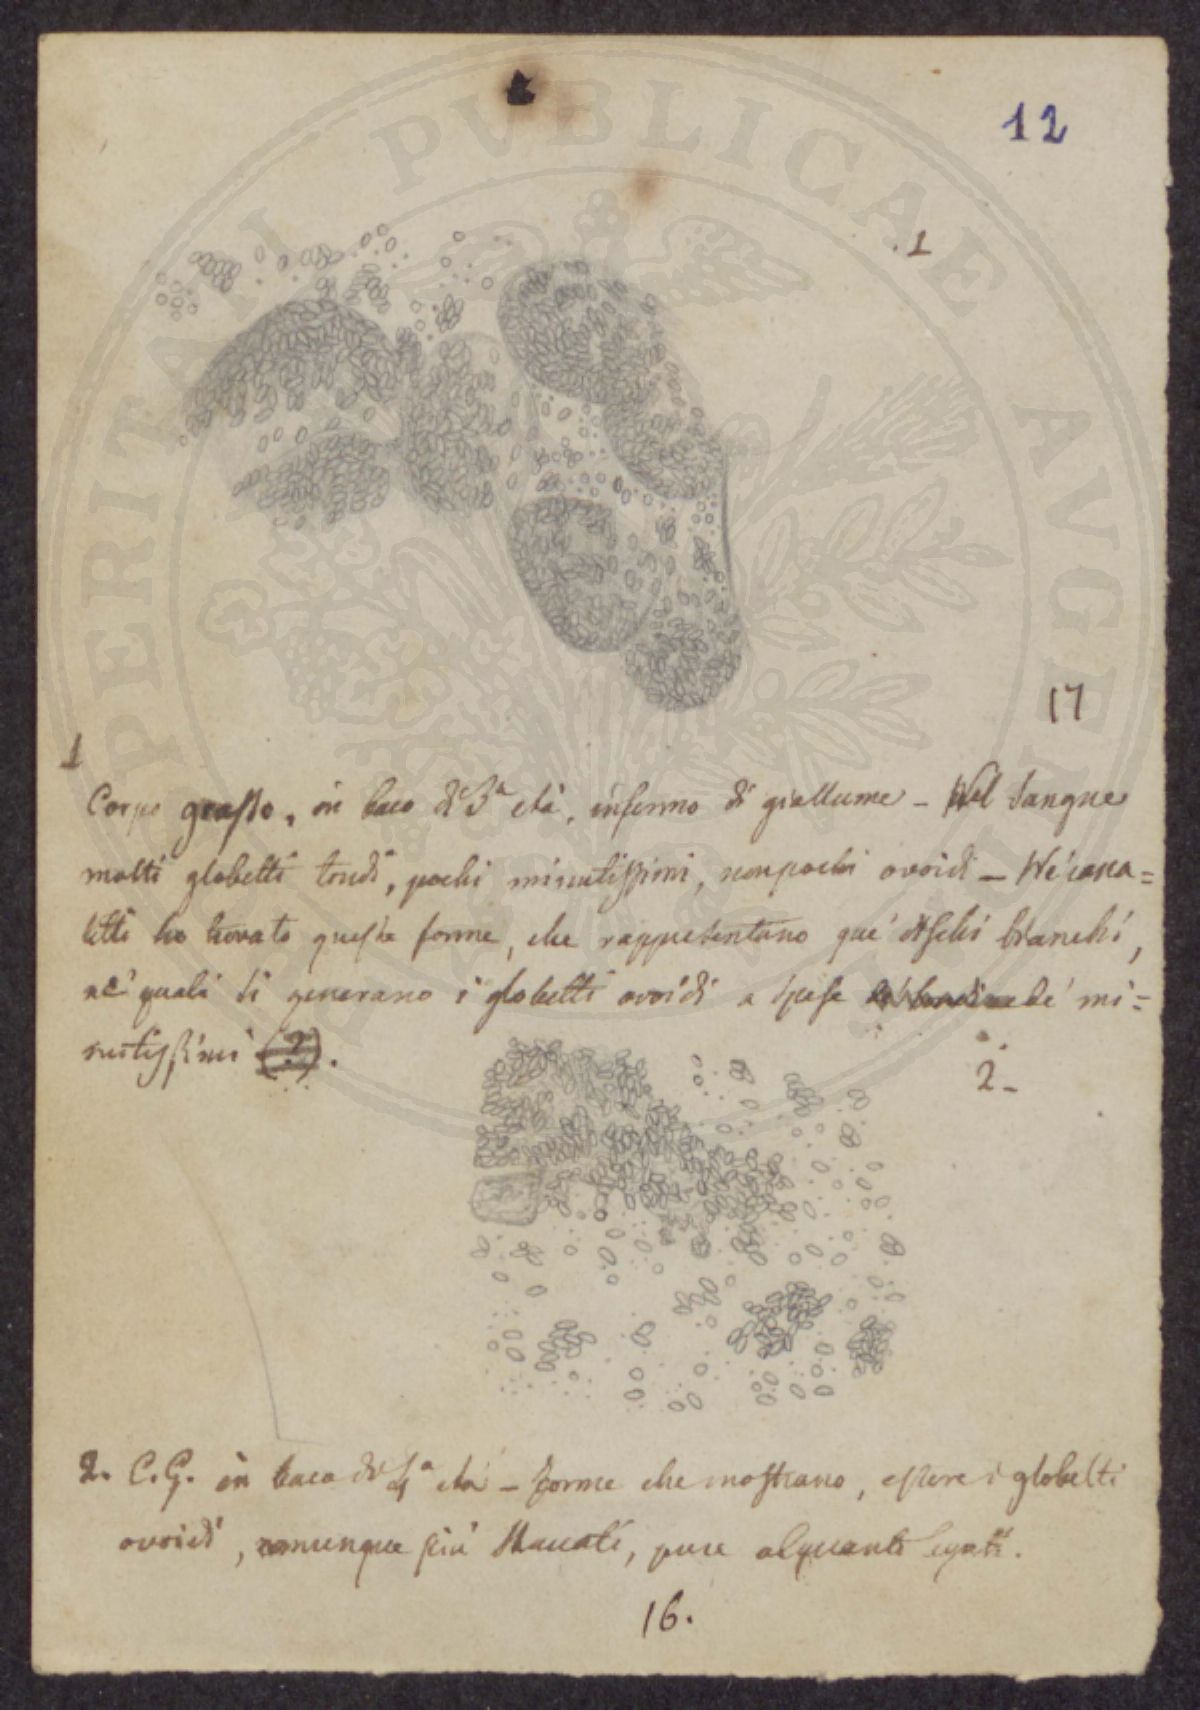 12
1
17
1
Corpo grasso, in baco di 3ª età, infermo di giallume - Nel sangue
molti globetti tondi, pochi minutissimi, non pochi ovoidi - Ne' cana=
letti ho trovato queste forme, che rappresentano que' dischi bianchi,
ne' quali si generano i globetti ovoidi a spese de' mi=
nutissimi (?).
2-
2. C.G. in baco di 4ª età - Forme che mostrano, essere i globetti
ovoidi, comunque più staccati, pure alquanti legati.
16.
PUBLICAE AUGENDAE PERITAE